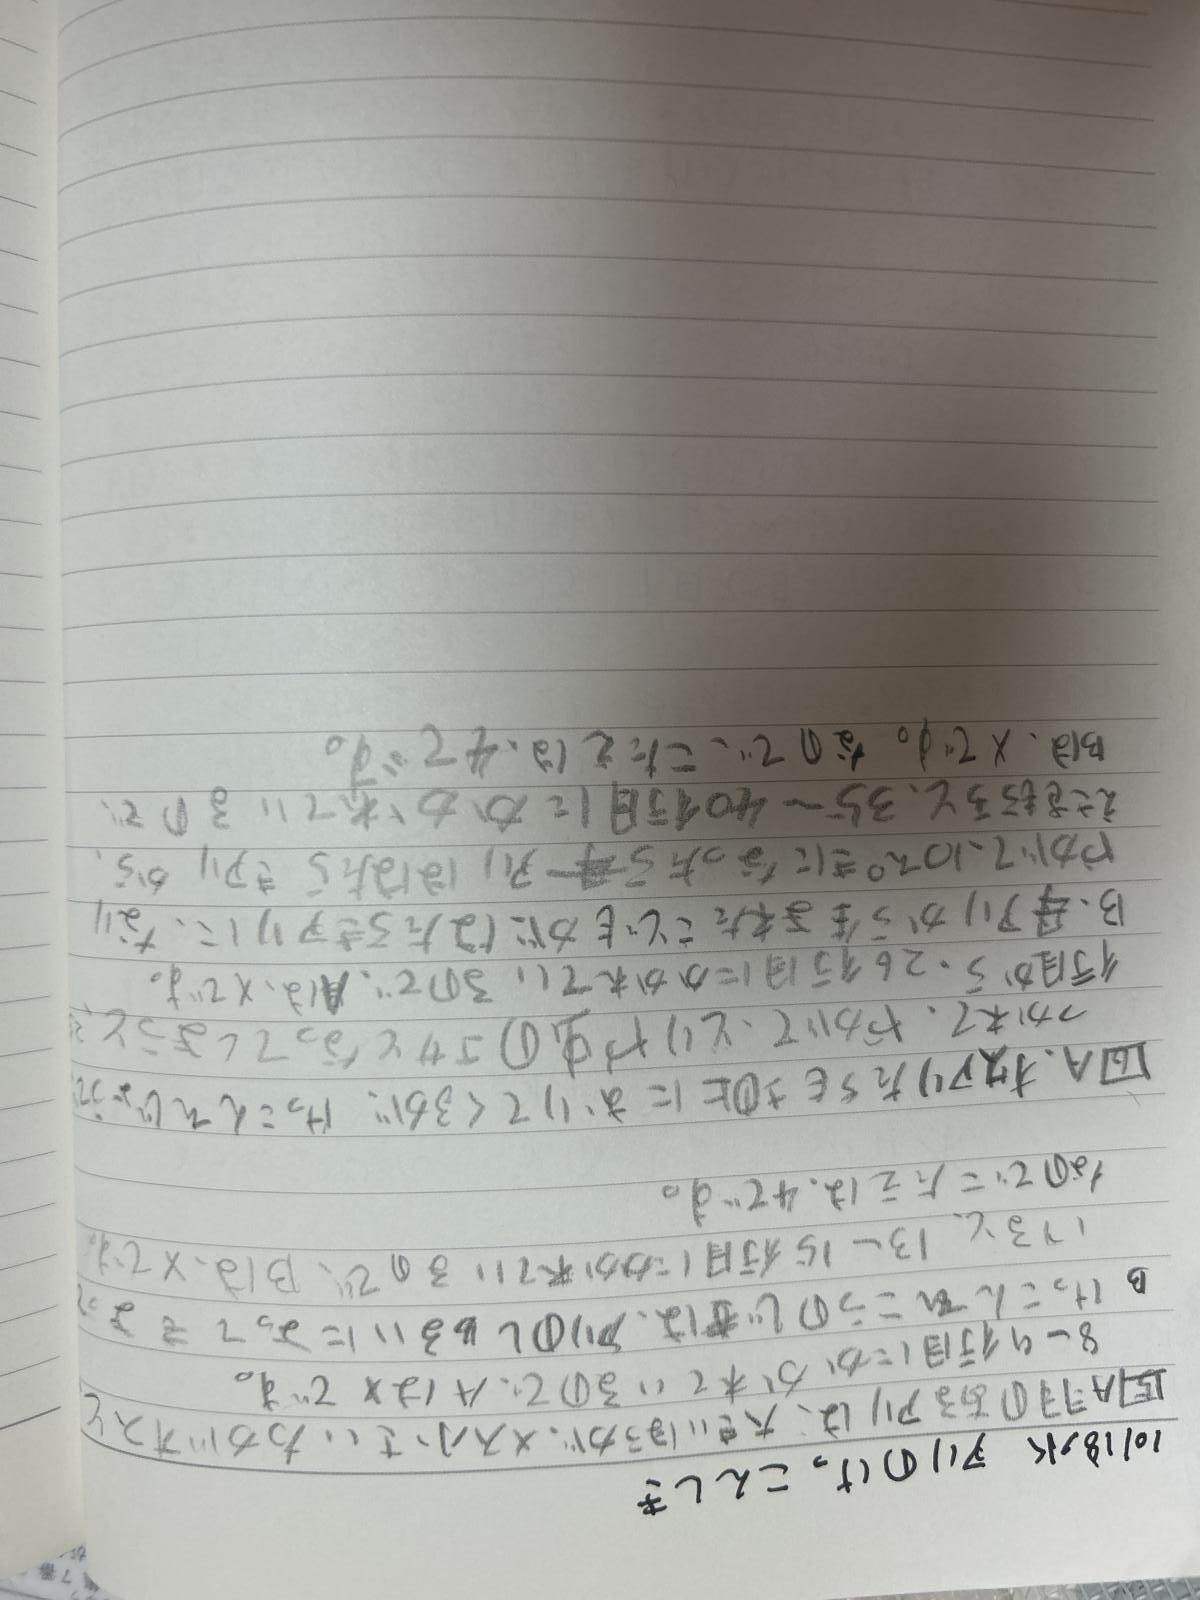 10/18水 アリのけっこんしき
5 Aヲネのあるアリは、大きいほうが、メス小さいカがオスと
8〜9行目にかかれているので、Aは×です。
B けっこんひこうのじきは、アリのしゅるいによってきまって
いると、13〜15行目にかかれているので、Bは、×です。
なのでこたえは、4です。
6 A.オスアリたちも地上におりてくるが、けっこんじょうで
つかれて、やがて、とりや虫のエサとなってしまうと
行目から、26行目にかかれているので、Aは、×です。
B.母アリから生まれたこどもがにはたらきアリに、なり
やがて、10ぴきになったら アリははたらきアリ から、
えさをもらうと、35〜40行目にかかれているので、
Bは、×です。なので、こたえは、4です。